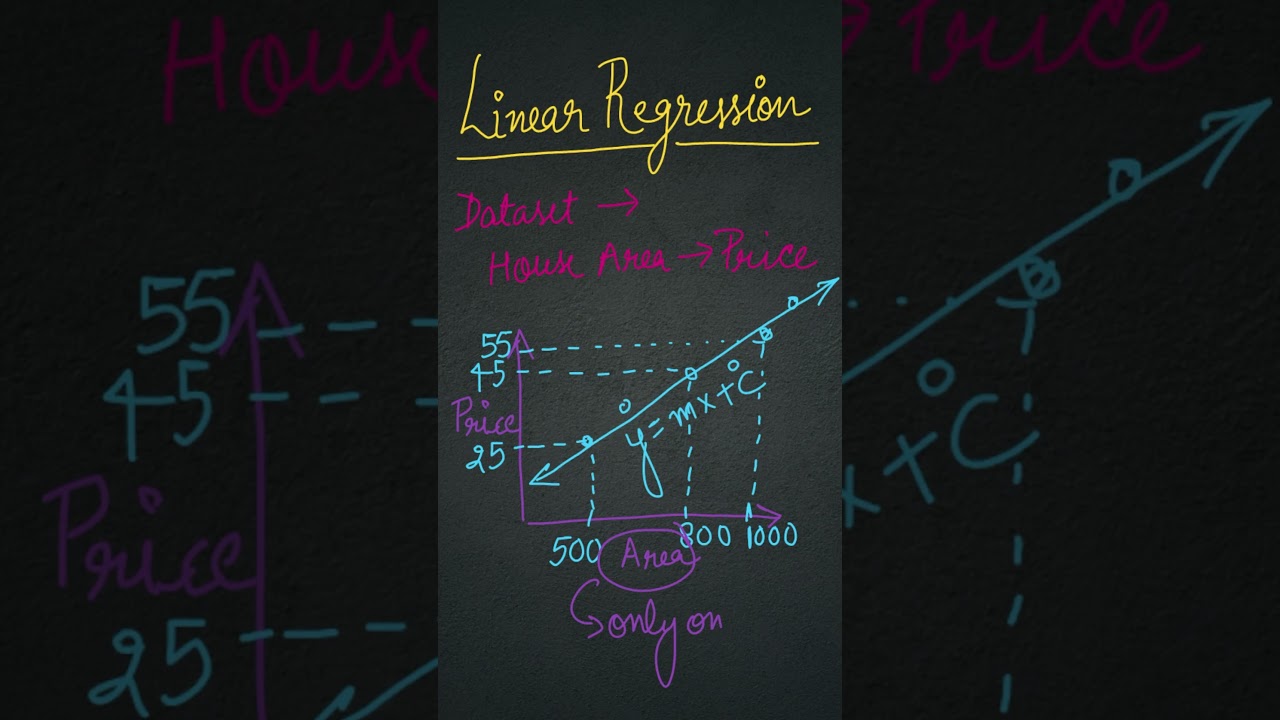 Linear Regression
Dataset →
House Area → Price
55
45
Price
25
y = mx + C
500 800 1000
Area
↳ only on